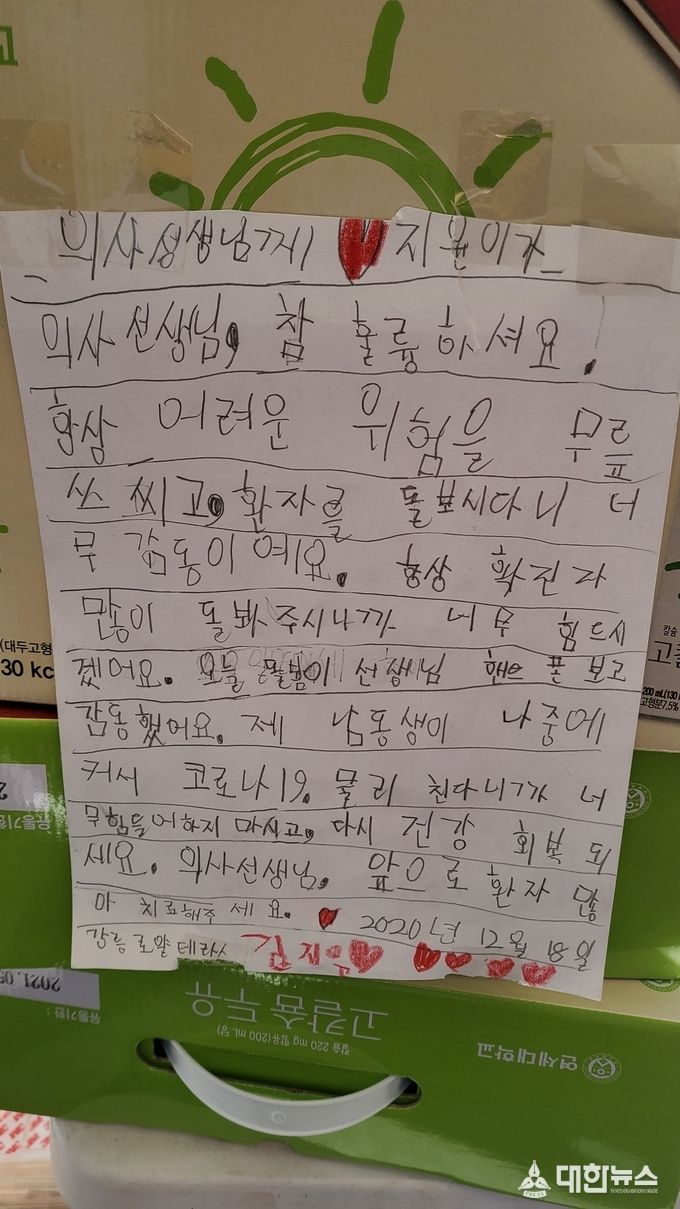 의사성생님께 지윤이가
의사선생님, 참 훌륭하셔요!
항상 어려운 위험을 무릅
쓰씨고, 환자를 돌보시다니 너
무 감동이예요. 항상 확진자
만이 돌봐주시니까 너무 힘드시
겠어요. 오늘 선생님 핸드폰 보고
감동했어요. 제 남동생이 나중에
커서 코로나19. 물리 친다니가 너
무힘들어하지 마시고, 다시 건강 회복 되
세요. 의사선생님. 앞으로 환자 많
아 치료해주세요. 2020년 12월 18일
강릉 로얄 테라스
(대두고형
30 kc
칼슘
고칼
200 mL(130
고형분7.5%
유통기한
2021.05
유통기한 :
고칼슘두유
칼슘 220 mg 함유(200 mL 당)
연세대학교
대한뉴스